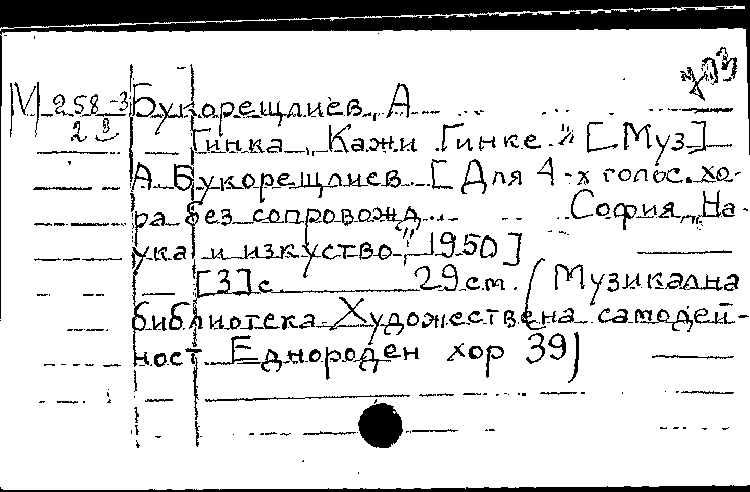 М 258-3 Букорещлиев, А
2
Гинка „Кажи Гинке" [Муз]
А Букорещлиев [Для 4-х голос. хо-
ра без сопровожд... София „На-
ука и изкуство", 1950]
[3]с 29см. (Музикална
библиотека Художествена самодей-
ност Еднороден хор 39)